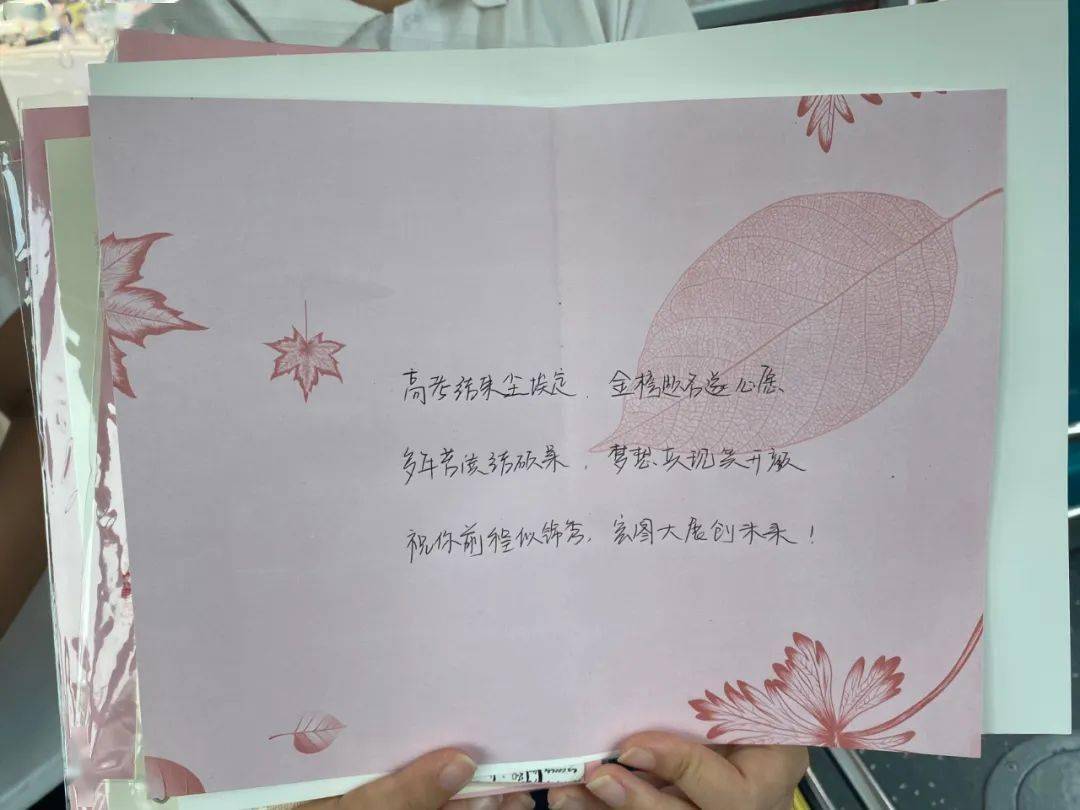 高考结束尘埃定，金榜题名遂心愿。
多年苦读结硕果，梦想实现笑开颜
祝你前程似锦秀，宏图大展创未来！